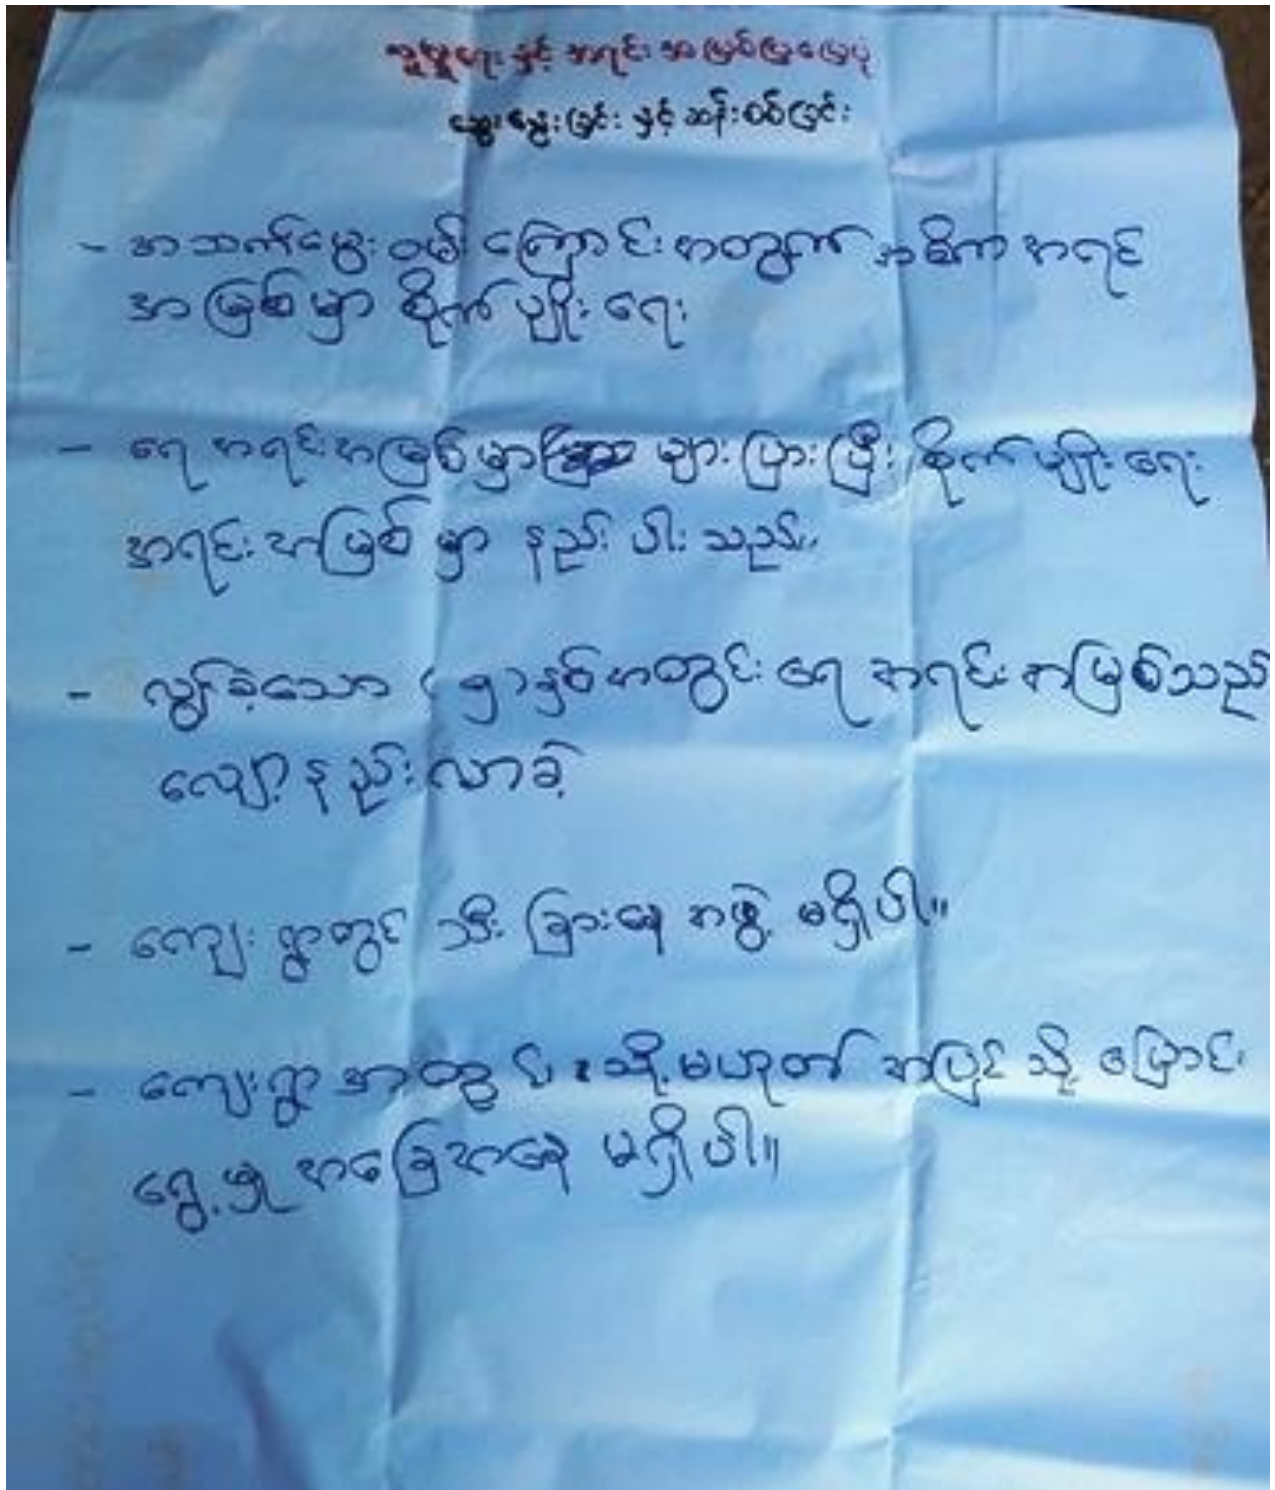 လူမှုရေး နှင့် အရင်းအမြစ်ပြမြေပုံ
ဆွေးနွေးခြင်း နှင့် ဆန်းစစ်ခြင်း
- အသက်မွေးဝမ်းကြောင်းအတွက် အဓိကအရင်
အမြစ်မှာ စိုက်ပျိုးရေး
- ရေအရင်းအမြစ်မှာ များပြားပြီး စိုက်ပျိုးရေး
အရင်းအမြစ်မှာ နည်းပါးသည်။
- လွန်ခဲ့သော (၅)နှစ်အတွင်း ရေအရင်းအမြစ်သည်
လျော့နည်းလာခဲ့
- ကျေးရွာတွင် သီးခြားနေ အဖွဲ့ မရှိပါ။
- ကျေးရွာအတွင်း သို့မဟုတ် အပြင်သို့ ပြောင်း
ရွေ့မှု အခြေအနေ မရှိပါ။